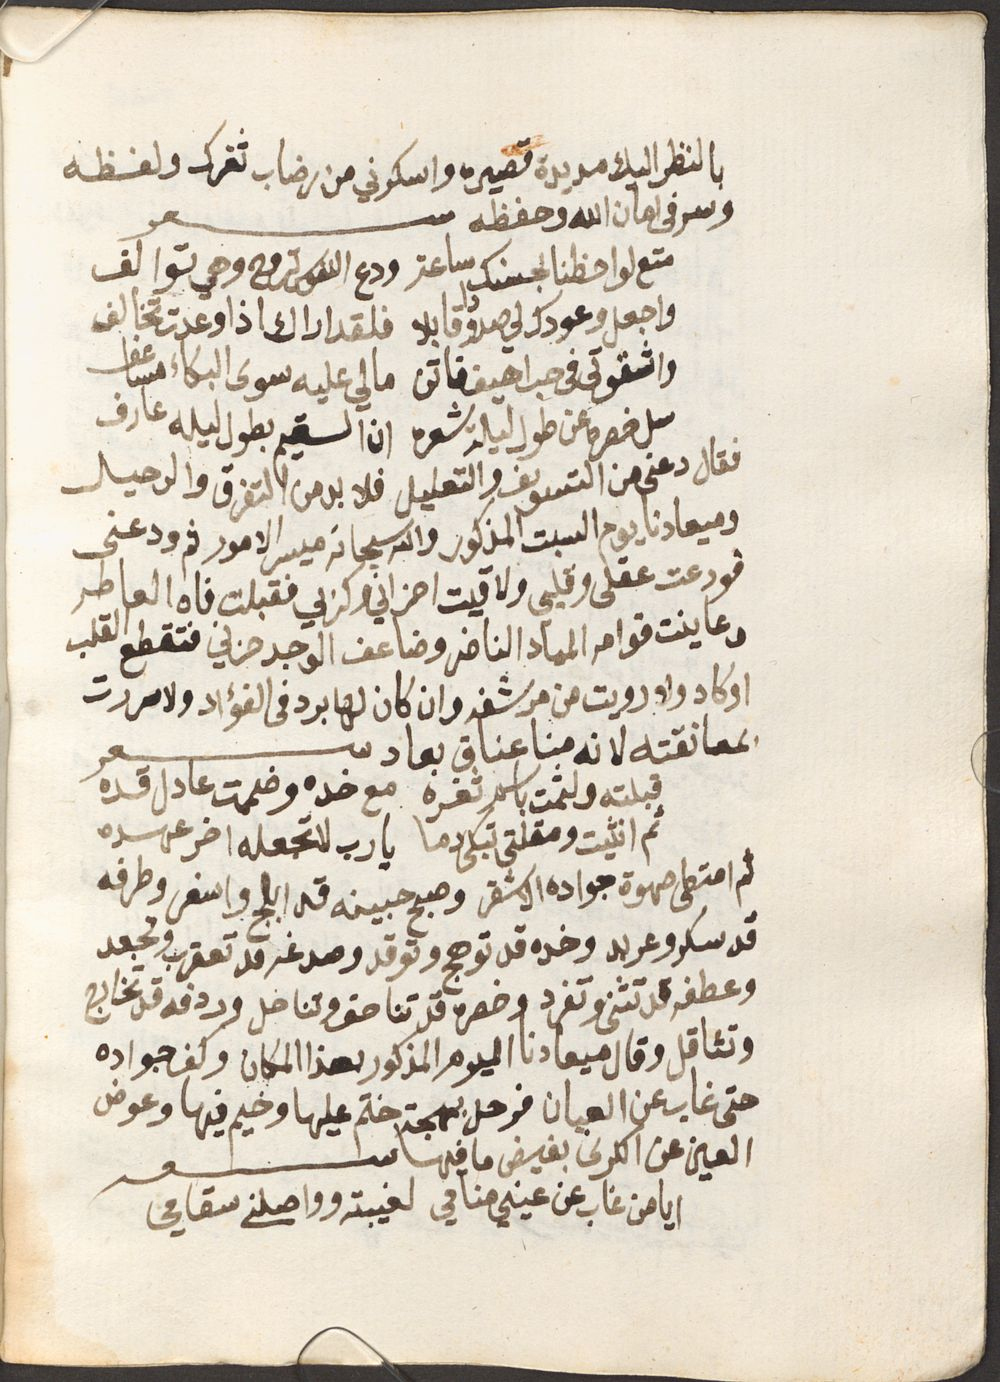 بالنظر اليك مديدة قصيره واسكروني من رضاب ثغرك ولفظه
وسر في امان الله وحفظه شعر
متع لواحظنا بحسنك ساعة ودع النفوس تروح وهي توالف
واجعل وعودك لي صدودا قابلا فلقد اراك اذا وعدت تخالف
واشقوتي في حب اهيف فاتن مالي عليه سوى البكاء مساعف
سل خصره عن طول ليلة شعره ان السقيم بطول ليله عارف
فقال دعني من التسويف والتعليل فلا بد من التفرق والرحيل
وميعادنا يوم السبت المذكور والله سبحانه ميسر الامور ثم ودعني
فودعت عقلي وقلبي ولاقيت احزاني وكربي فقبلت فاه العاطر
وعاينت قوامه المياد الناضر وضاعف الوجد حزني فتقطع القلب
اوكاد ولا رويت من مرشفه وان كان لها برد في الفؤاد ولا سررت
بمعانقته لانه مبنا عناق بعاد شعر
قبلته ولثمت باسم ثغره مع خده وضممت عادل قده
ثم انثنيت ومقلتي تبكي دما يا رب لا تجعله اخر عهده
ثم امتطى صهوة جواده الاشقر وصبح جبينه قد ابلج واسفر وطرفه
قد سكر وعربد وخده قد توهج وتوقد وصدغه قد تعقرب وتجعد
وعطفه قد تثنى وتفرد وخصره قد تناحف وتناحل وردفه قد تخارج
وتثاقل وقال ميعادنا اليوم المذكور بهذا المكان وكف جواده
حتى غاب عن العيان فرحل بمهجة ختم عليها وخيم فيها وعوض
العين عن الكرى بفيض ما فيها شعر
ايا من غاب عن عيني منامي لغيبته وواصلني سقامي